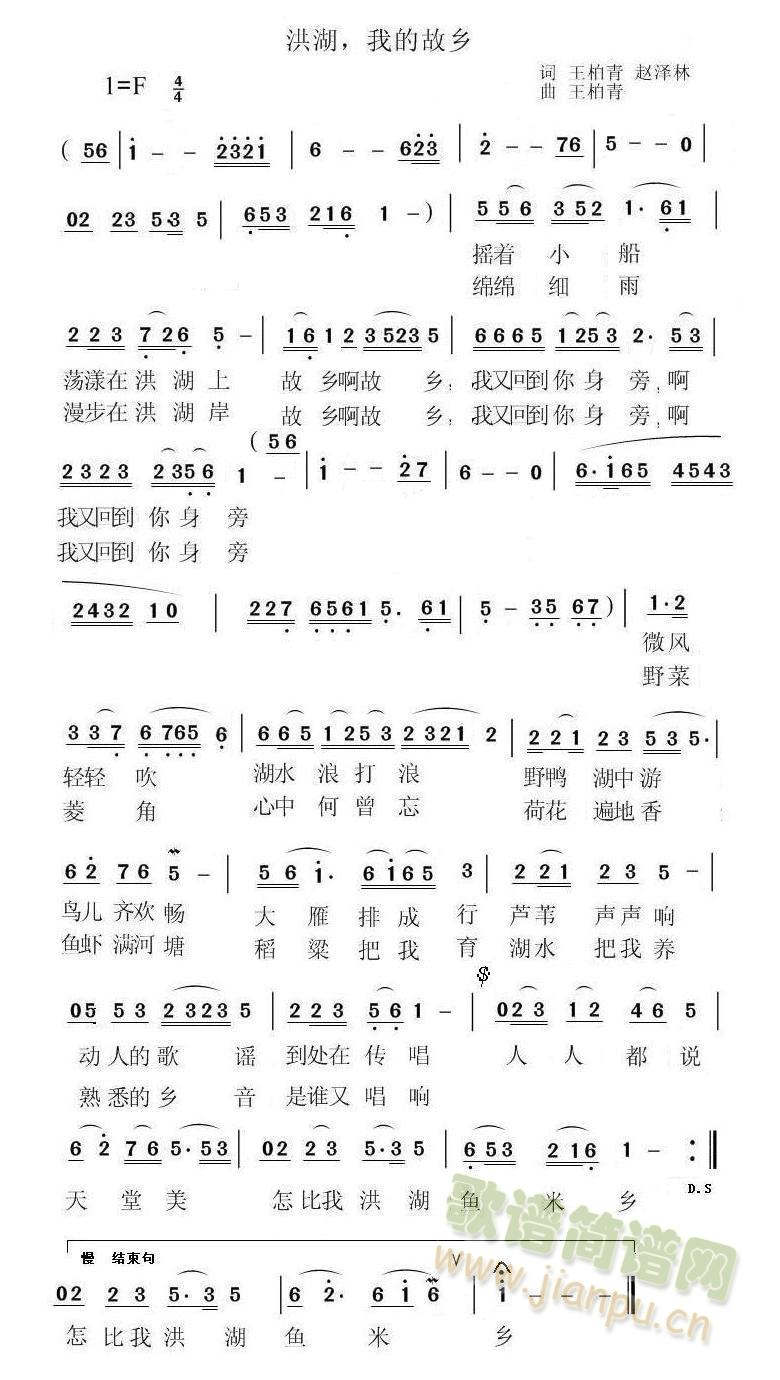 洪湖，我的故乡
词 王柏青 赵泽林
1=F 4/4
曲 王柏青
( 56 | i - - 2321 | 6 - - 623 | 2 - - 76 | 5 - - 0 |
02 23 5·3 5 | 653 216 1 - ) | 556 352 1· 61 |
摇着 小 船
绵绵 细 雨
223 726 5 - | 16 12 3523 5 | 6665 1253 2· 53 |
荡漾在 洪 湖 上 故 乡啊故 乡，我又回到 你 身 旁，啊
漫步在 洪 湖 岸 故 乡啊故 乡，我又回到 你 身 旁，啊
( 56
2323 2356 1 - | i - - 27 | 6 - - 0 | 6·i65 4543
我又回到 你 身 旁
我又回到 你 身 旁
2432 10 | 227 6561 5· 61 | 5 - 35 67 ) | 1·2
微风
野菜
337 6765 6 | 665 1253 2321 2 | 221 23 535· |
轻轻 吹 湖水 浪 打 浪 野鸭 湖中 游
菱 角 心中 何 曾 忘 荷花 遍地 香
62 76 5 - | 56 i· 6i65 3 | 221 23 5 - |
鸟儿 齐欢 畅 大 雁 排 成 行 芦苇 声声 响
鱼虾 满河 塘 稻 粱 把 我 育 湖水 把我 养
05 53 2323 5 | 223 56 1 - | 023 12 46 5 |
动 人的 歌 谣 到处在 传 唱 人 人 都 说
熟 悉的 乡 音 是谁又 唱 响
62 76 5·53 | 02 23 5·3 5 | 653 216 1 - :||
天 堂 美 怎 比我 洪 湖 鱼 米 乡
D.S
慢 结束句
02 23 5·3 5 | 6 2· 6i 6 | i - - - ||
怎 比我 洪 湖 鱼 米 乡
歌谱简谱网
www.jianpu.cn